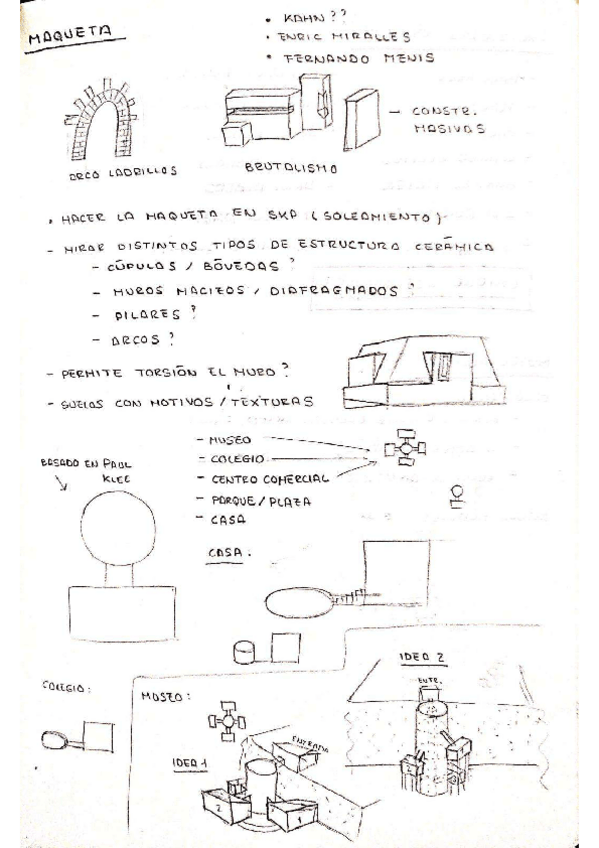 MAQUETA
• KAHN??
• ENRIC MIRALLES
• FERNANDO MENIS
ARCO LADRILLOS
BRUTALISMO
— CONSTR. MASIVAS
• HACER LA MAQUETA EN SKP (SOLEAMIENTO)
- MIRAR DISTINTOS TIPOS DE ESTRUCTURA CERÁMICA
- CÚPULAS / BÓVEDAS?
- MUROS MACIZOS / DIAFRAGMADOS?
- PILARES?
- ARCOS?
- PERMITE TORSIÓN EL MURO?
- SUELOS CON MOTIVOS / TEXTURAS
BASADO EN PAUL
KLEE
- MUSEO
- COLEGIO
- CENTRO COMERCIAL
- PARQUE/PLAZA
- CASA
CASA:
COLEGIO:
MUSEO:
IDEA 1
ENTRADA
2
1
IDEA 2
ENTR.